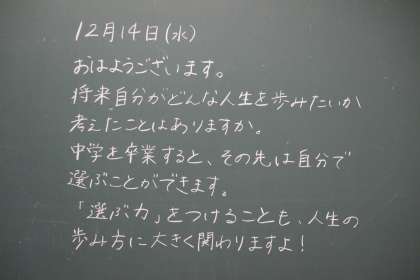 12月14日(水)
おはようございます。
将来自分がどんな人生を歩みたいか
考えたことはありますか。
中学を卒業すると、その先は自分で
選ぶことができます。
「選ぶ力」をつけることも、人生の
歩み方に大きく関わりますよ!